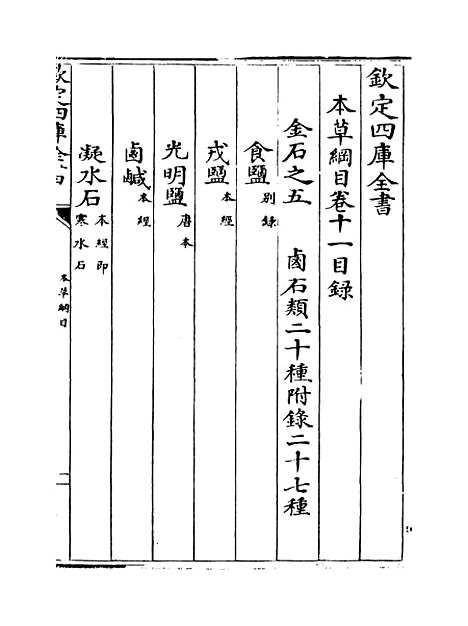 欽定四庫全書
本草綱目卷十一目録
金石之五　鹵石類二十種附錄二十七種
食鹽別録
戎鹽本經
光明鹽唐本
鹵鹹本經
凝水石本經即寒水石
欽定四庫全書
本草綱目
一